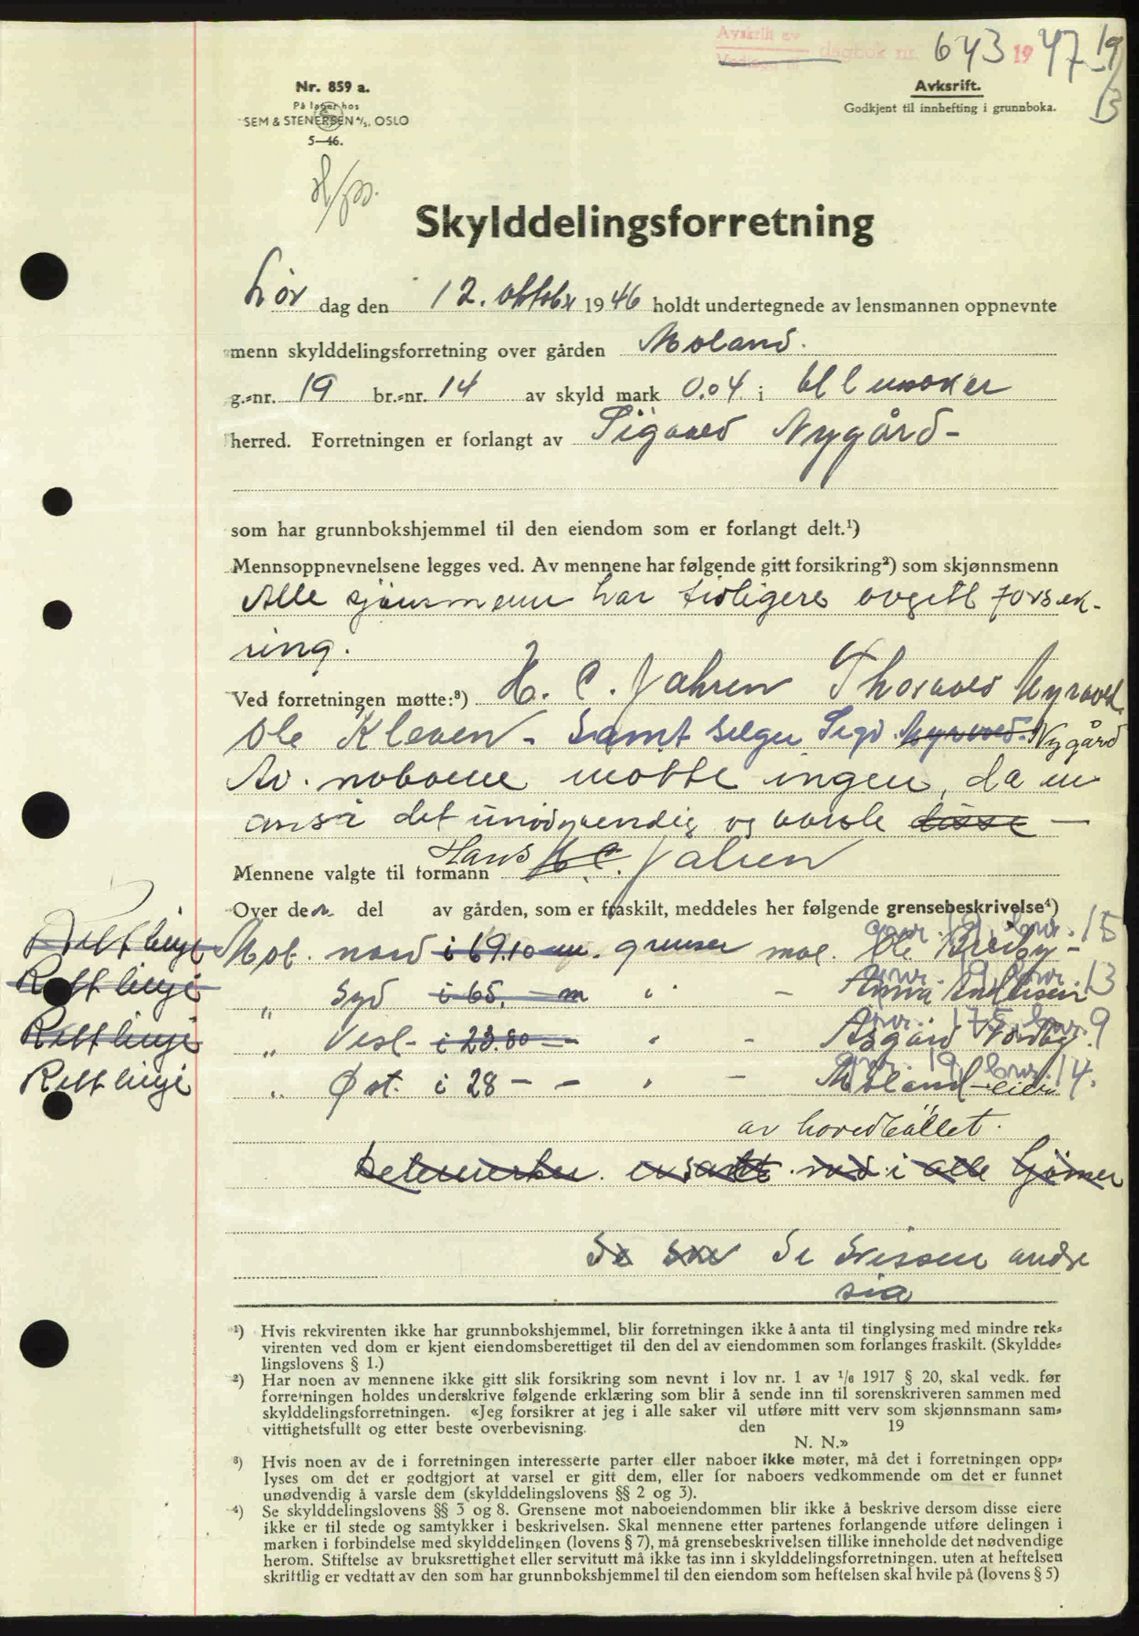 Avskrift av dagbok nr. 643 1947 19/3
Nr. 859 a.
På lager hos
SEM & STENERSEN A/S. OSLO
5—46.
Avskrift.
Godkjent til innhefting i grunnboka.
Skylddelingsforretning
Lør dag den 12. oktober 1946 holdt undertegnede av lensmannen oppnevnte
menn skylddelingsforretning over gården Moland.
g.-nr. 19 br.-nr. 14 av skyld mark 0.04 i
herred. Forretningen er forlangt av Sigvard Nygård -
som har grunnbokshjemmel til den eiendom som er forlangt delt.¹)
Mennsoppnevnelsene legges ved. Av mennene har følgende gitt forsikring²) som skjønnsmenn
Alle sjønsmenn har tidligere avgitt forsik-
ring.
Ved forretningen møtte:³) H. C. Jahren Thorvald Myrvold
Ole Kleven - Samt Selger Sigv. Myrvold. Nygård
Av. naboene møtte ingen, da en
anså det unødvendig og varsle disse —
Mennene valgte til formann Hans H. C. Jahren
Over den del av gården, som er fraskilt, meddeles her følgende grensebeskrivelse⁴)
gnr. 19, bnr. 15
Rett linje Mot. nord i 69.10 m. grenser mot. Ole Breiby -
gnr. 19, bnr. 13
Rett linje „ Syd i 65, — m „ - Anna Endresen
gnr. 175, bnr. 9
Rett linje „ Vest - i 23.80 — „ - Asgård Nordby.
gnr. 19, bnr. 14.
Rett linje „ Øst. i 28 - - „ - Moland - eier
av hovedbøllet.
Delemerker er satt ned i alle hjørner
Se Se Skissen andre
sia
¹) Hvis rekvirenten ikke har grunnbokshjemmel, blir forretningen ikke å anta til tinglysing med mindre rek-
virenten ved dom er kjent eiendomsberettiget til den del av eiendommen som forlanges fraskilt. (Skyldde-
lingslovens § 1.)
²) Har noen av mennene ikke gitt slik forsikring som nevnt i lov nr. 1 av 1/6 1917 § 20, skal vedk. før
forretningen holdes underskrive følgende erklæring som blir å sende inn til sorenskriveren sammen med
skylddelingsforretningen. «Jeg forsikrer at jeg i alle saker vil utføre mitt verv som skjønnsmann sam-
vittighetsfullt og etter beste overbevisning. den 19
N. N.»
³) Hvis noen av de i forretningen interesserte parter eller naboer ikke møter, må det i forretningen opp-
lyses om det er godtgjort at varsel er gitt dem, eller for naboers vedkommende om det er funnet
unødvendig å varsle dem (skylddelingslovens §§ 2 og 3).
⁴) Se skylddelingslovens §§ 3 og 8. Grensene mot naboeiendommen blir ikke å beskrive dersom disse eiere
ikke er til stede og samtykker i beskrivelsen. Skal mennene etter partenes forlangende utføre delingen i
marken i forbindelse med skylddelingen (lovens § 7), må grensebeskrivelsen tillike inneholde det nødvendige
herom. Stiftelse av bruksrettighet eller servitutt må ikke tas inn i skylddelingsforretningen. uten at heftelsen
skriftlig er vedtatt av den som har grunnbokshjemmel til den eiendom som heftelsen skal hvile på (lovens § 5)